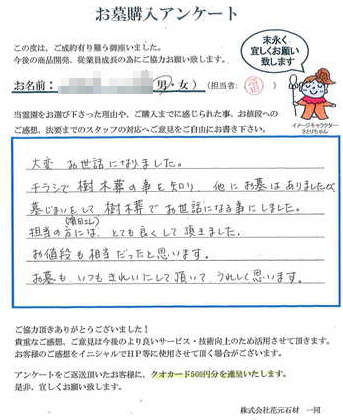 お墓購入アンケート
この度は、ご成約有り難う御座いました。
今後の商品開発、従業員成長の為にご協力お願い致します。
末永く
宜しくお願い
致します
お名前：（男・女）（担当者：
イメージキャラクター
さとりちゃん
当霊園をお選び下さった理由や、ご購入までに感じられた事、お値段への
ご感想、法要までのスタッフの対応へご意見をご自由にお書き下さい。
大変 お世話になりました。
チラシで 樹木葬の事を知り、他にお墓はありましたが
墓じまいをして 樹木葬でお世話になる事にしました。
担当の方には、とても良くして頂きました。
お値段も相当だったと思います。
お墓も いつもきれいにして頂いて うれしく思います。
ご協力頂きありがとうございました！
貴重なご感想、ご意見は今後のより良いサービス・技術向上のため活用させて頂きます。
お客様のご感想をイニシャルでHP等に使用させて頂く場合がございます。
アンケートをご返送頂いたお客様に、クオカード500円分を進呈いたします。
是非、宜しくお願い致します。
株式会社花元石材 一同